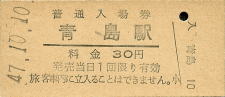 47.10.10
普通入場券
青島駅
料金 30円
発売当日1回限り有効
旅客車内に立入ることはできません。